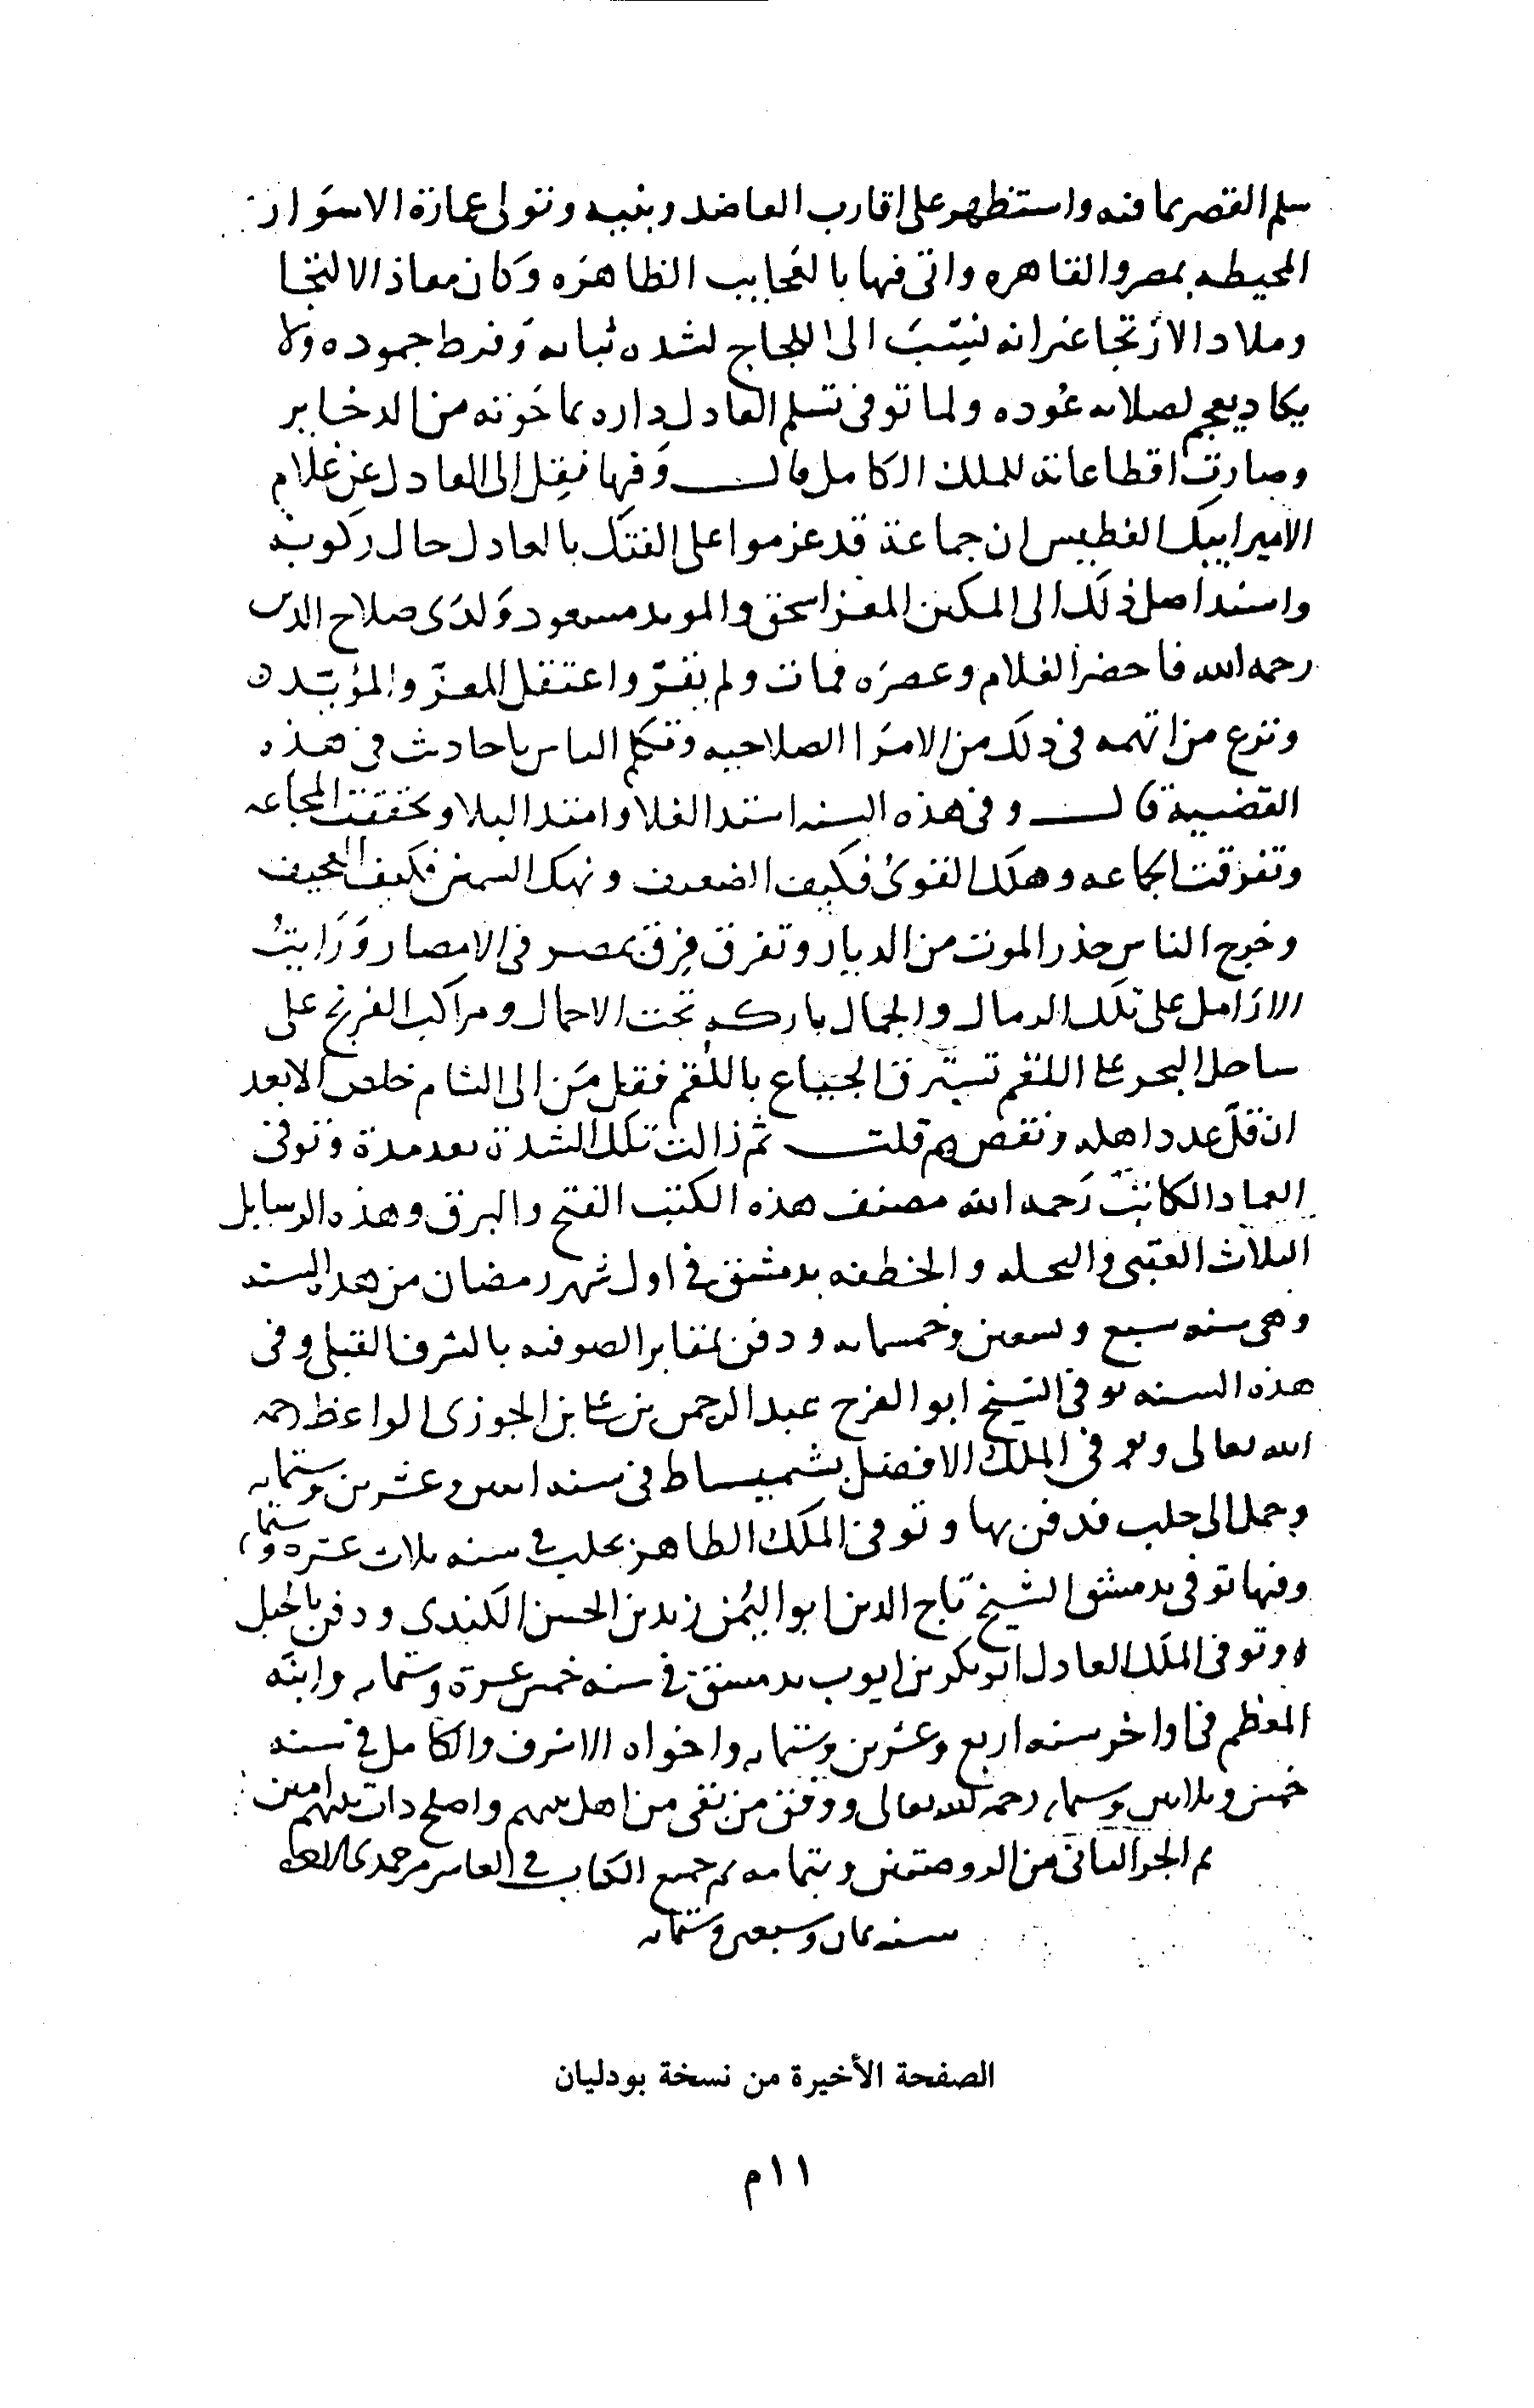 سلم القصر بما فيه واستظهر على اقارب العاضد وبنيه وتولى عمارة الاسوار
المحيطه بمصر والقاهره واتى فيها بالعجايب الظاهره وكان معاذ الالتجا
وملاذ الارتجا غير انه نسب الى اللجاج لشده ثباته وفرط جموده ولا
يكاد يعجم لصلابه عوده ولما توفى تسلم العادل داره بما خوته من الدخاير
وصارت اقطاعاته للملك الكامل قال وفيها نقل الى العادل عن غلام
الامير ايبك الفطيس ان جماعة قد عزموا على الفتك بالعادل حال ركوبه
واسند اصل ذلك الى المكين المعز اسحق والمويد مسعود ولدى صلاح الدين
رحمه الله فاحضر الغلام وعصره فمات ولم يقر واعتقل المعز والمؤيد
ونوع من اتهمه في ذلك من الامرا الصلاحيه وتكلم الناس باحاديث في هذه
القضية قال وفي هذه السنه اشتد الغلا وامتد البلا وتحققت المجاعه
وتفرقت الجماعه وهلك القوى فكيف الضعيف ونهك السمين فكيف العجيف
وخرج الناس حذر الموت من الديار وتفرق فرق مصر في الامصار ورايت
الارامل على تلك الرمال والجمال باركه تحت الاحمال ومراكب الفرنج على
ساحل البحر على اللقم تسترق الجياع باللقم فقل من الى الشام خلص الا بعد
ان قل عدد اهله ونقص قلت ثم زالت تلك الشدة بعد مدة وتوفى
العماد الكاتب رحمه الله مصنف هذه الكتب الفتح والبرق وهذه الرسايل
الثلاث العتبى والنحله والخطفه بدمشق في اول شهر رمضان من هذه السنه
وهي سنه سبع وتسعين وخمسمايه ودفن بمقابر الصوفيه بالشرف القبلى وفى
هذه السنه توفى الشيخ ابو الفرج عبد الرحمن بن على ابن الجوزى الواعظ رحمه
الله تعالى وتوفى الملك الافضل بشميساط في سنه اثنين وعشرين وستمايه
وحمل الى حلب فدفن بها وتوفى الملك الظاهر بحلب في سنه ثلاث عشره وستمايه
وفيها توفى بدمشق الشيخ تاج الدين ابو اليمن زيد بن الحسن الكندى ودفن بالجبل
وتوفى الملك العادل ابو بكر بن ايوب بدمشق في سنه خمس عشرة وستمايه وابنه
المعظم في اواخر سنه اربع وعشرين وستمايه واخواه الاشرف والكامل في سنه
خمس وثلاثين وستمايه رحمهم الله تعالى ووفق من بقى من اهل بيتهم واصلح ذات بينهم امين
تم الجز الثانى من الروضتين وبتمامه تم جميع الكتاب في العاشر من جمدى
سنه ثمان وسبعين وستمايه
الصفحة الأخيرة من نسخة بودليان
١١م